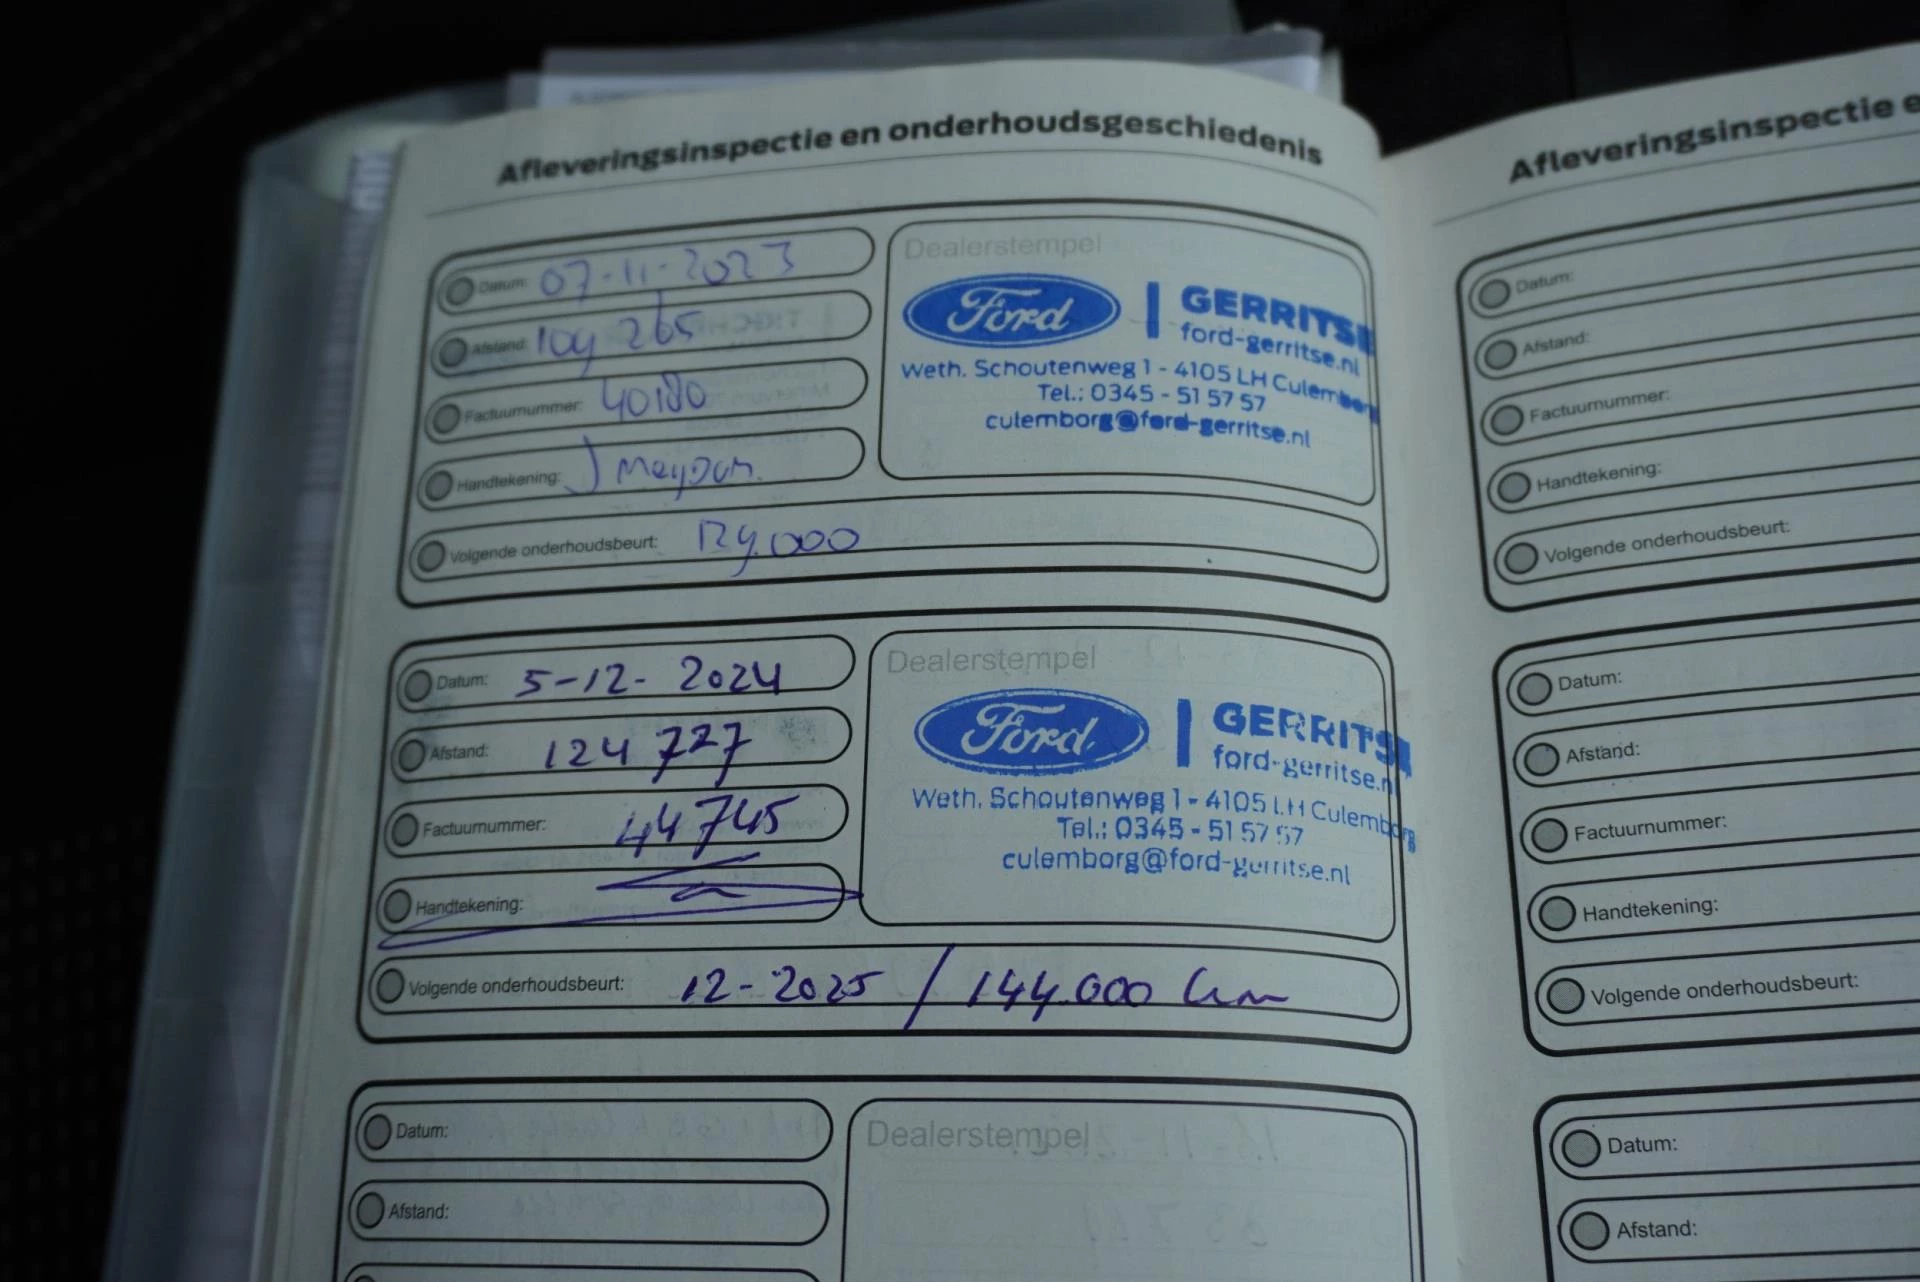 Afleveringsinspectie en onderhoudsgeschiedenis
Datum: 07-11-2023
Afstand: 109 265
Factuurnummer: 40180
Handtekening:
Volgende onderhoudsbeurt: 129.000
Dealerstempel
Ford | GERRITSE
ford-gerritse.nl
Weth. Schoutenweg 1 - 4105 LH Culemborg
Tel.: 0345 - 51 57 57
culemborg@ford-gerritse.nl
Datum: 5-12-2024
Afstand: 124 727
Factuurnummer: 44745
Handtekening:
Volgende onderhoudsbeurt: 12-2025 / 144.000 km
Dealerstempel
Ford | GERRITSE
ford-gerritse.nl
Weth. Schoutenweg 1 - 4105 LH Culemborg
Tel.: 0345 - 51 57 57
culemborg@ford-gerritse.nl
Datum:
Afstand:
Dealerstempel
Afleveringsinspectie e
Datum:
Afstand:
Factuurnummer:
Handtekening:
Volgende onderhoudsbeurt:
Datum:
Afstand:
Factuurnummer:
Handtekening:
Volgende onderhoudsbeurt:
Datum:
Afstand: